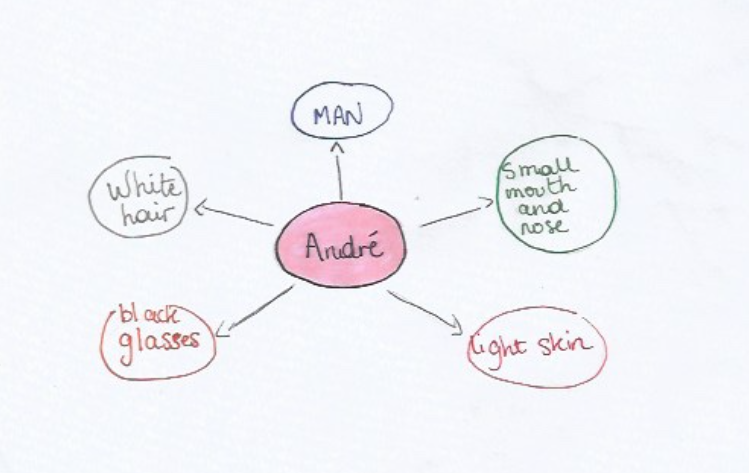 MAN
White
hair
Small
mouth
and
nose
André
black
glasses
light skin